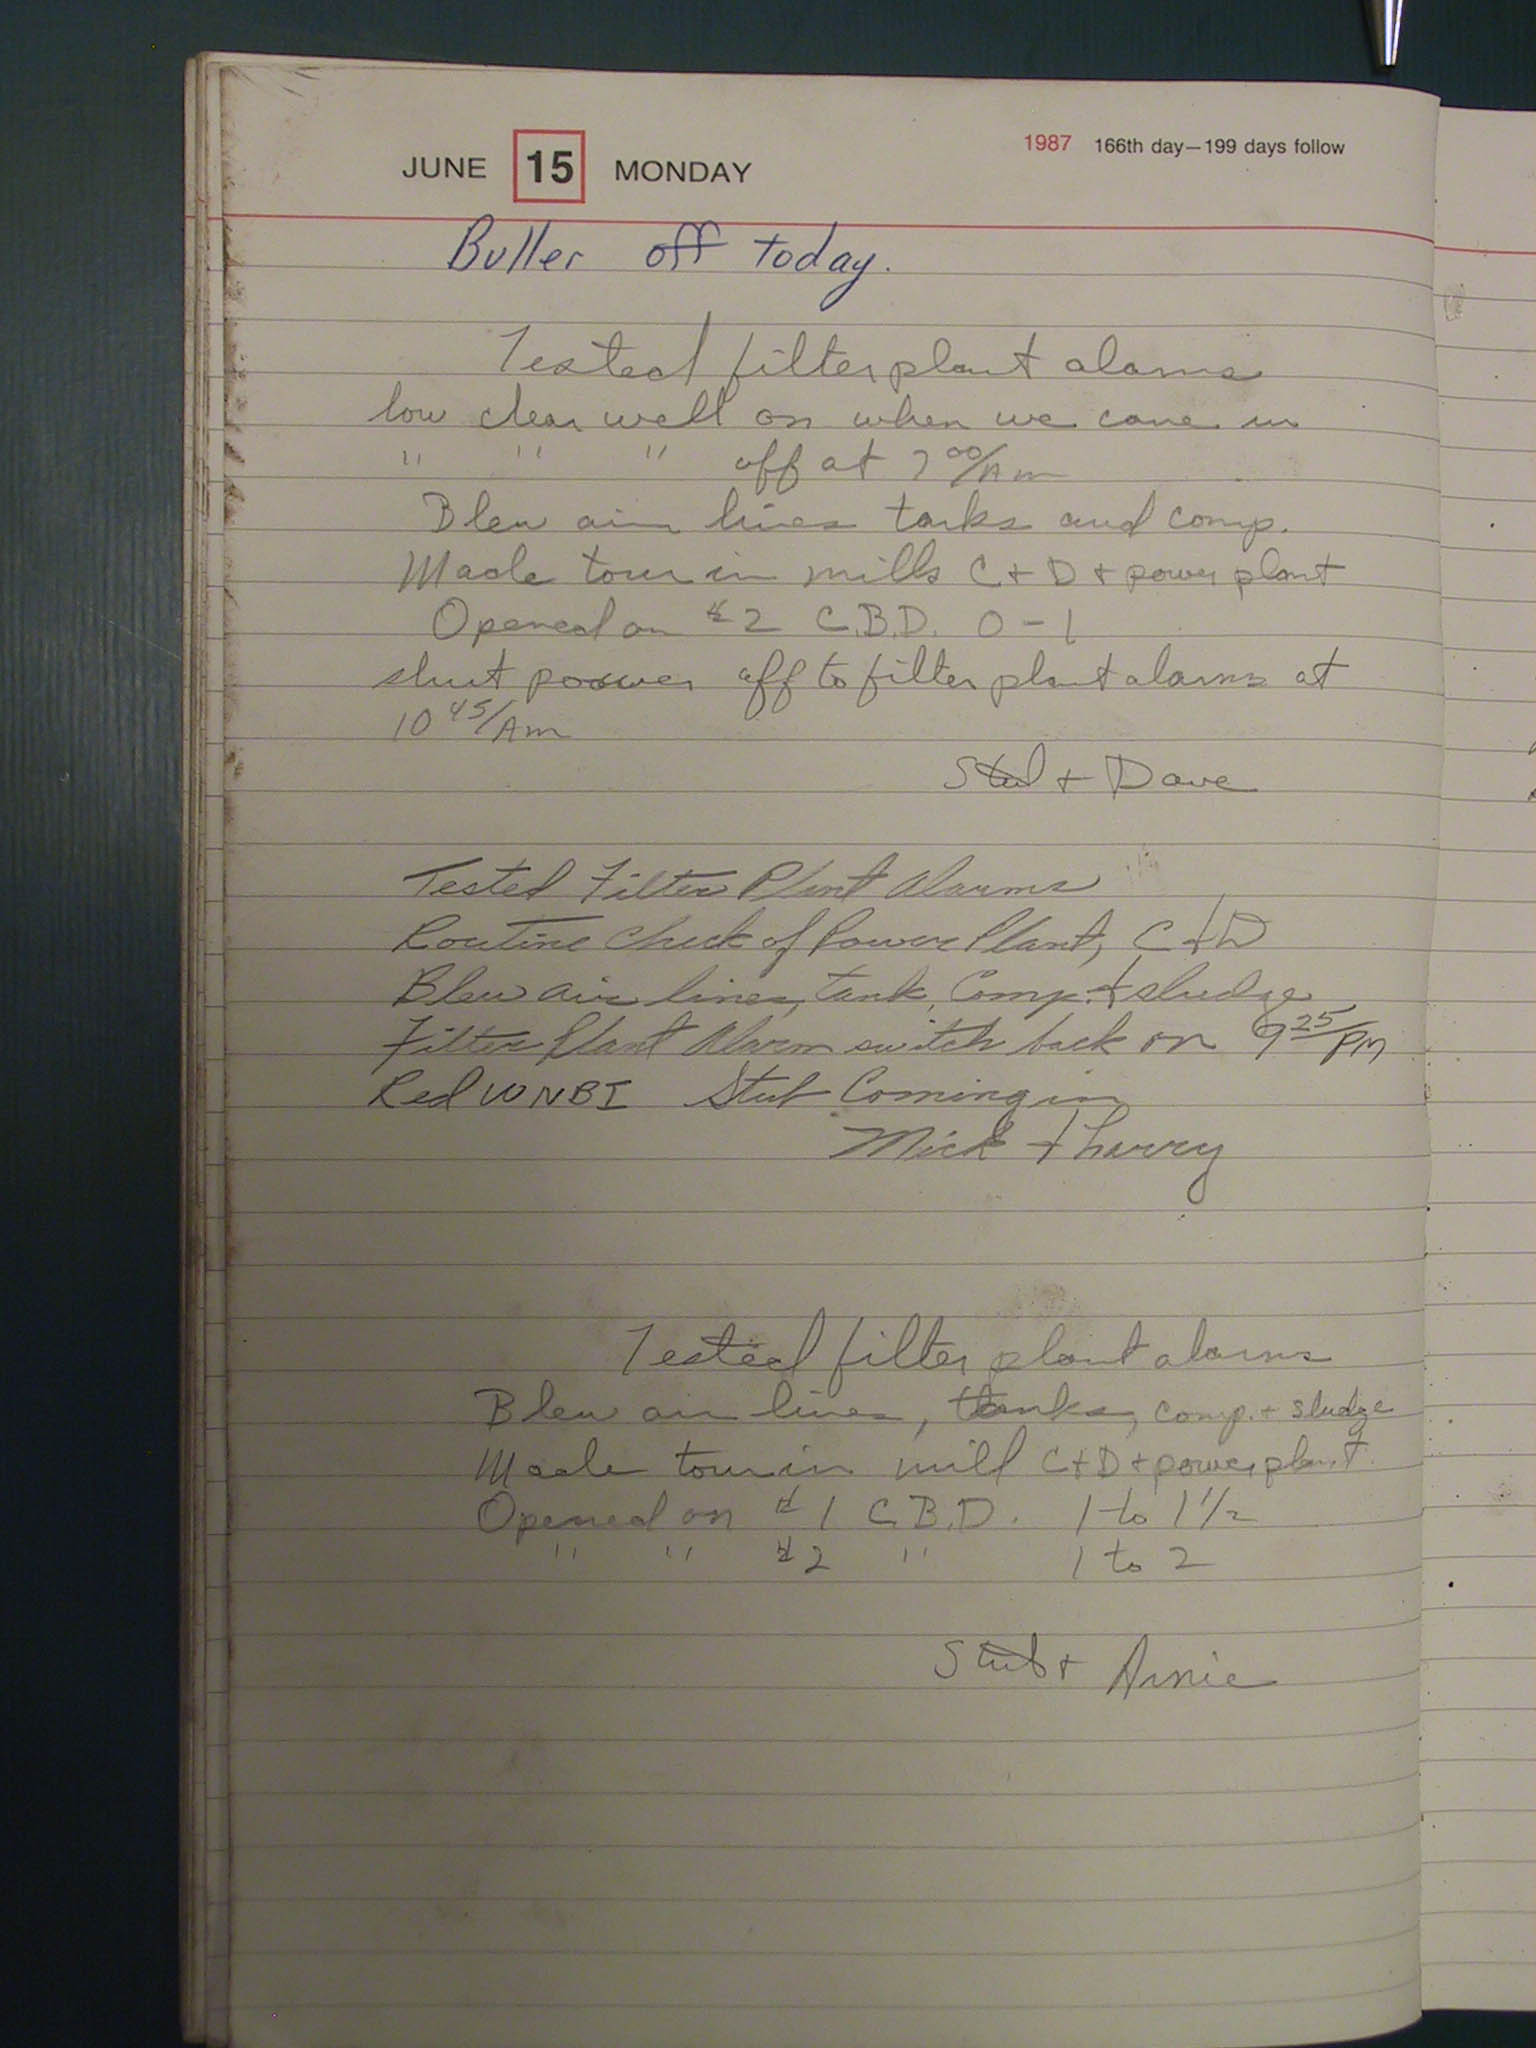 JUNE 15 MONDAY 1987 166th day—199 days follow
Buller off today.
Tested filter plant alarms
low clear well on when we came in
" " " off at 7 00/AM
Blew air lines tanks and comp.
Made tour in mills C + D + power plant
Opened on #2 C.B.D. 0 - 1
shut power off to filter plant alarms at
10 45/AM
Stub + Dave
Tested Filter Plant Alarms
Routine Check of Power Plant, C + D
Blew air lines, tank, Comp. + sludge
Filter Plant Alarm switch back on 9 25/PM
Red WNBI Stub Coming in
Mick + Harry
Tested filter plant alarms
Blew air lines, tanks, comp. + sludge
Made tour in mill C + D + power plant.
Opened on #1 C.B.D. 1 to 1 1/2
" " #2 " 1 to 2
Stub + Arnie